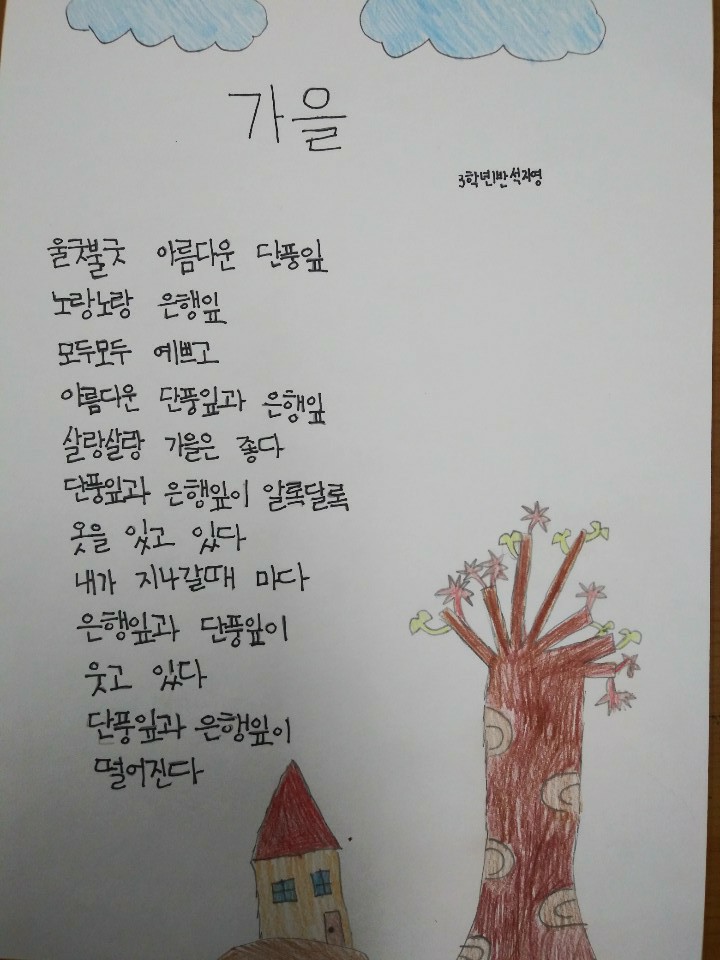 가을
3학년1반 석지영
울긋불긋 아름다운 단풍잎
노랑노랑 은행잎
모두모두 예쁘고
아름다운 단풍잎과 은행잎
살랑살랑 가을은 좋다
단풍잎과 은행잎이 알록달록
옷을 입고 있다
내가 지나갈때 마다
은행잎과 단풍잎이
웃고 있다
단풍잎과 은행잎이
떨어진다